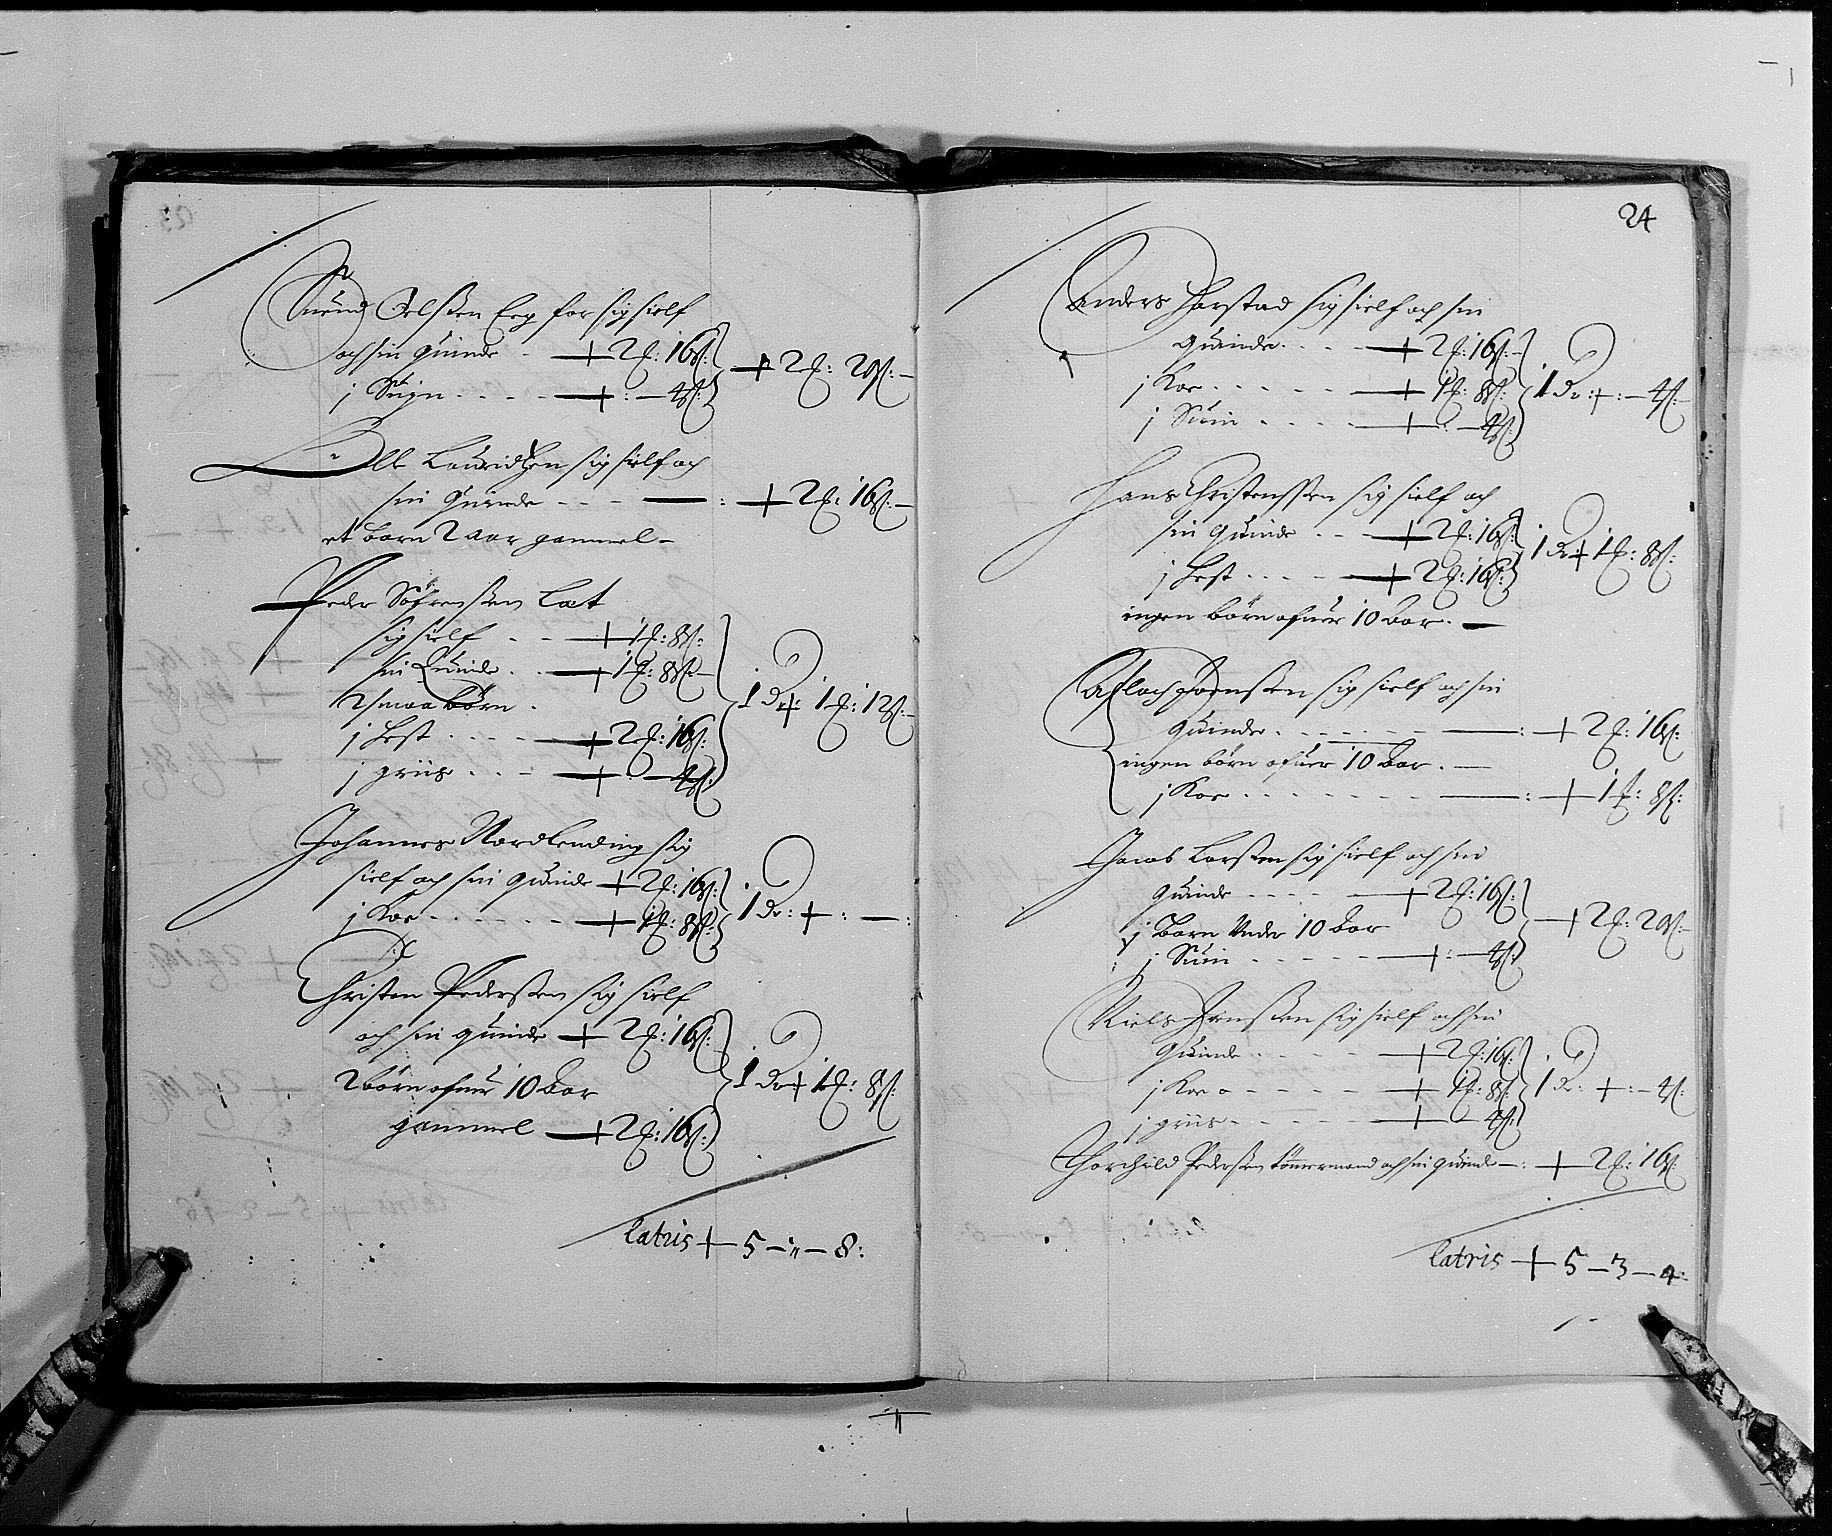 Suend Oelssen Erg for sig sielf
och sin quinde - + 2 ß: 16 ß: + 2 ß: 20 ß: -
j Suijn . . . . + : - 4 ß:
Olle Lauridtzen sig sielf och
sin Quinde - - - : + 2 ß: 16 ß: -
et barn 2 aar gammel -
Peder Söfrenssen Lat
sig sielf . . - + 1 ß: 8 ß:
sin Quinde . . - + 1 ß: 8 ß: -
2 smaa börn . 1 dr + 1 ß: 12 ß: -
j hest . . . - + 2 ß: 16 ß:
j griis . . - + . - 4 ß:
Johannes Nordlending sig
sielf och sin quinde + 2 ß: 16 ß:
j Koe - . . . . - + 1 ß: 8 ß: 1 dr: + : - :
Christen Pederssen sig sielf
och sin quinde + 2 ß: 16 ß:
2 börn ofuer 10 Aar 1 dr + 1 ß: 8 ß:
gammel + 2 ß: 16 ß:
latris + 5 - " - 8:
24
Anders Harstad sig sielf och sin
quinde . . . - + 2 ß: 16 ß: -
j Koe . . . . . - + 1 ß: 8 ß: 1 dr: + : - 4 ß: -
j Suin . . . . + : - 4 ß:
Hans Christenssen sig sielf och
sin quinde . . - + 2 ß: 16 ß: 1 dr + 1 ß: 8 ß:
j hest . . . - + 2 ß: 16 ß:
ingen börn ofuer 10 Aar . -
sig sielf och sin
quinde . . . . . - : + 2 ß: 16 ß:
ingen börn ofuer 10 Aar . -
j Koe . . . . . . - : + 1 ß: 8 ß:
Jacob Larssen sig sielf och sin
quinde - . . . - + 2 ß: 16 ß:
j Barn Under 10 Aar + 2 ß: 20 ß: -
j Suin . . . . - + : - 4 ß:
Niels Jenssen sig sielf och sin
quinde . . . . - + 2 ß: 16 ß:
j Koe . . . . - + 1 ß: 8 ß: 1 dr: + : - 4 ß:
j griis . . . . - + - 4 ß:
Thorchild Pederssen tömmermand och sin quinde - : + 2 ß: 16 ß:
latris + 5 - 3 - 4: